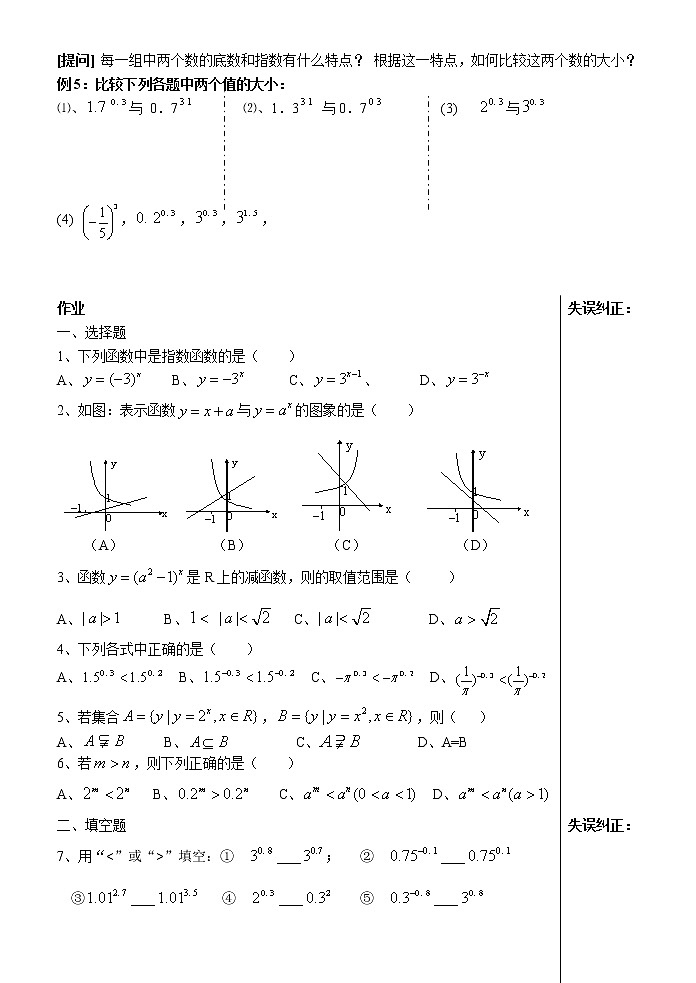 [提问] 每一组中两个数的底数和指数有什么特点? 根据这一特点,如何比较这两个数的大小?
例5:比较下列各题中两个值的大小:
⑴、1.7^0.3与 0.7^31 ⑵、1.3^31 与0.7^03 (3) 2^0.3与3^0.3
(4) (-1/5)^3,0.2^0.3,3^0.3,3^1.5,
作业 失误纠正:
一、选择题
1、下列函数中是指数函数的是( )
A、y=(-3)^x B、y=-3^x C、y=3^(x-1)、 D、y=3^(-x)
2、如图:表示函数y=x+a与y=a^x的图象的是( )
y y y y
1 1 1 1
-1 0 x -1 0 x -1 0 x -1 0 x
(A) (B) (C) (D)
3、函数y=(a^2-1)^x是R上的减函数,则的取值范围是( )
A、|a|>1 B、1< |a|<√2 C、|a|<√2 D、a>√2
4、下列各式中正确的是( )
A、1.5^0.3<1.5^0.2 B、1.5^-0.3<1.5^-0.2 C、-π^0.3<-π^0.2 D、(1/π)^-0.3<(1/π)^-0.2
5、若集合A={y|y=2^x,x∈R},B={y|y=x^2,x∈R},则( )
A、A⫋B B、A⊆B C、A⫌B D、A=B
6、若m>n,则下列正确的是( )
A、2^m<2^n B、0.2^m>0.2^n C、a^m<a^n(0<a<1) D、a^m<a^n(a>1)
二、填空题 失误纠正:
7、用“<”或“>”填空:① 3^0.8 ___3^0.7; ② 0.75^-0.1 ___0.75^0.1
③1.01^2.7 ___1.01^3.5 ④ 2^0.3 ___0.3^2 ⑤ 0.3^-0.8 ___3^0.8